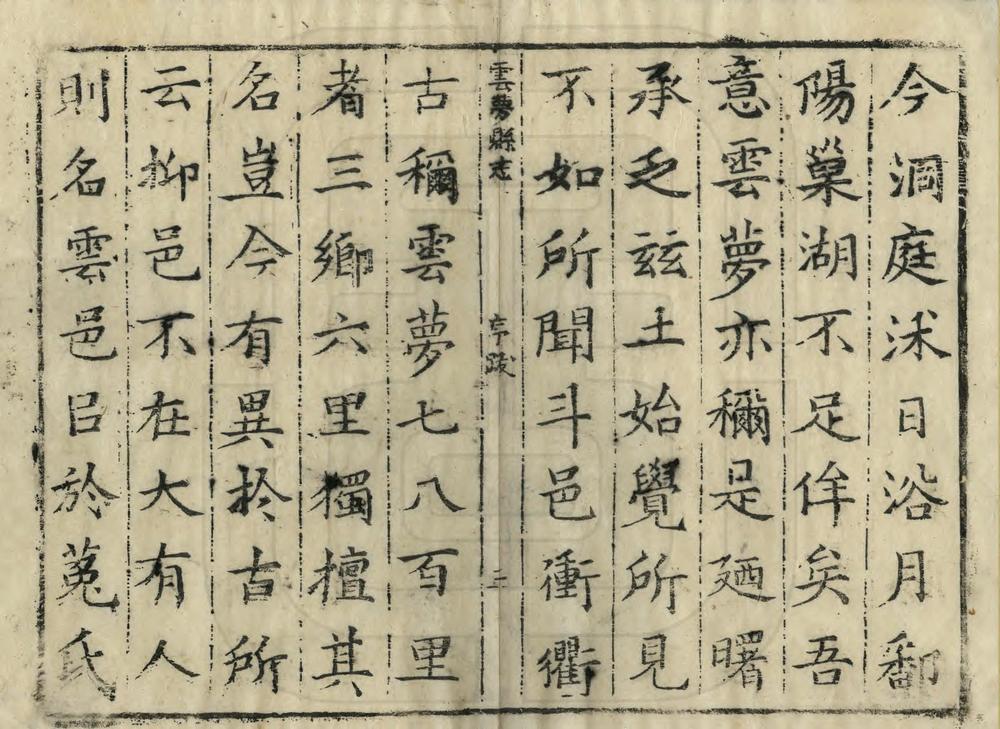 今洞庭沭日浴月鄱
陽巢湖不足侔矣吾
意雲夢亦穪是廼曙
承乏玆土始覺所見
不如所聞斗邑衝衢
雲夢縣志 序跋 三
古穪雲夢七八百里
者三鄉六里獨檀其
名豈今有異扵古所
云抑邑不在大有人
則名雲邑㠯於菟氏